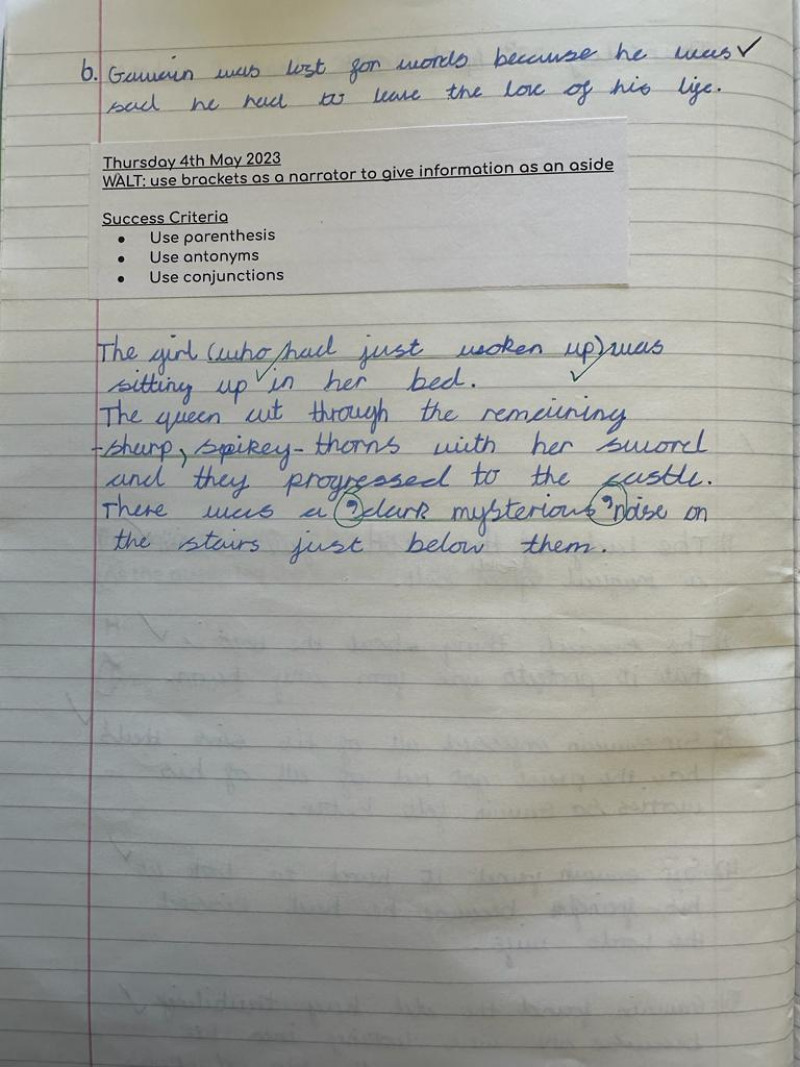 b. Gawain was lost for words because he was ✓
sad he had to leave the love of his life.
Thursday 4th May 2023
WALT: use brackets as a narrator to give information as an aside
Success Criteria
• Use parenthesis
• Use antonyms
• Use conjunctions
The girl (who had just woken up) was
sitting up in her bed.
The queen cut through the remaining
-sharp, spikey- thorns with her sword
and they progressed to the castle.
There was a , dark mysterious , noise on
the stairs just below them.